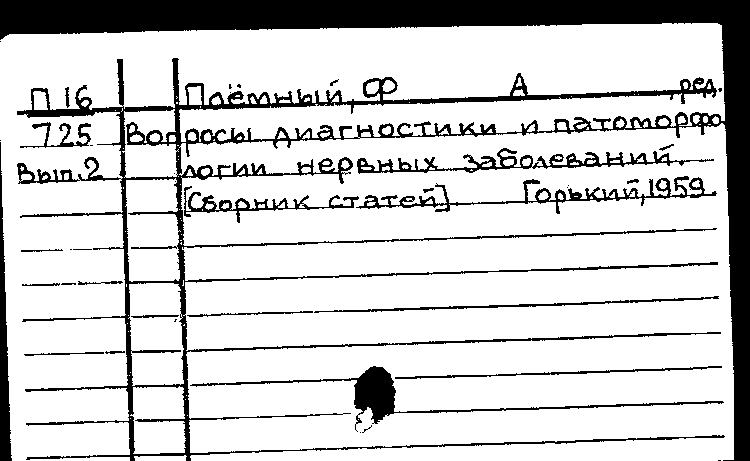 П 16 Поёмный, Ф А , ред.
725 Вопросы диагностики и патоморфо
Вып.2 логии нервных заболеваний.
[Сборник статей]. Горький, 1959.